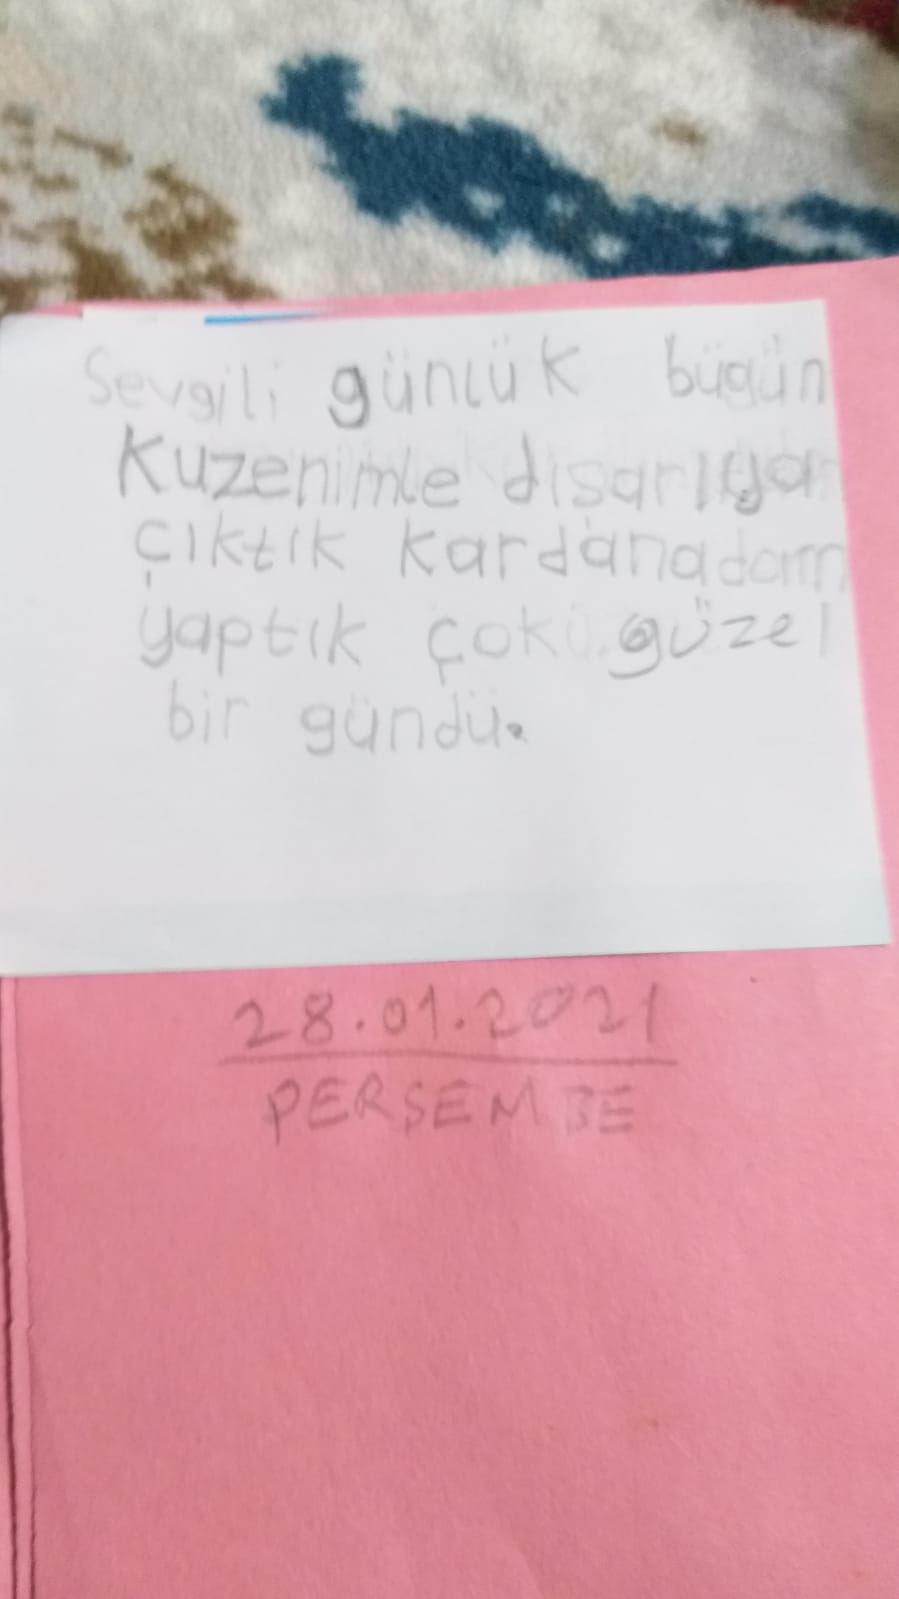 Sevgili günlük bügün
Kuzenimle dışarıya
çıktık kardanadam
yaptık çok güzel
bir gündü.
28.01.2021
PERŞEMBE